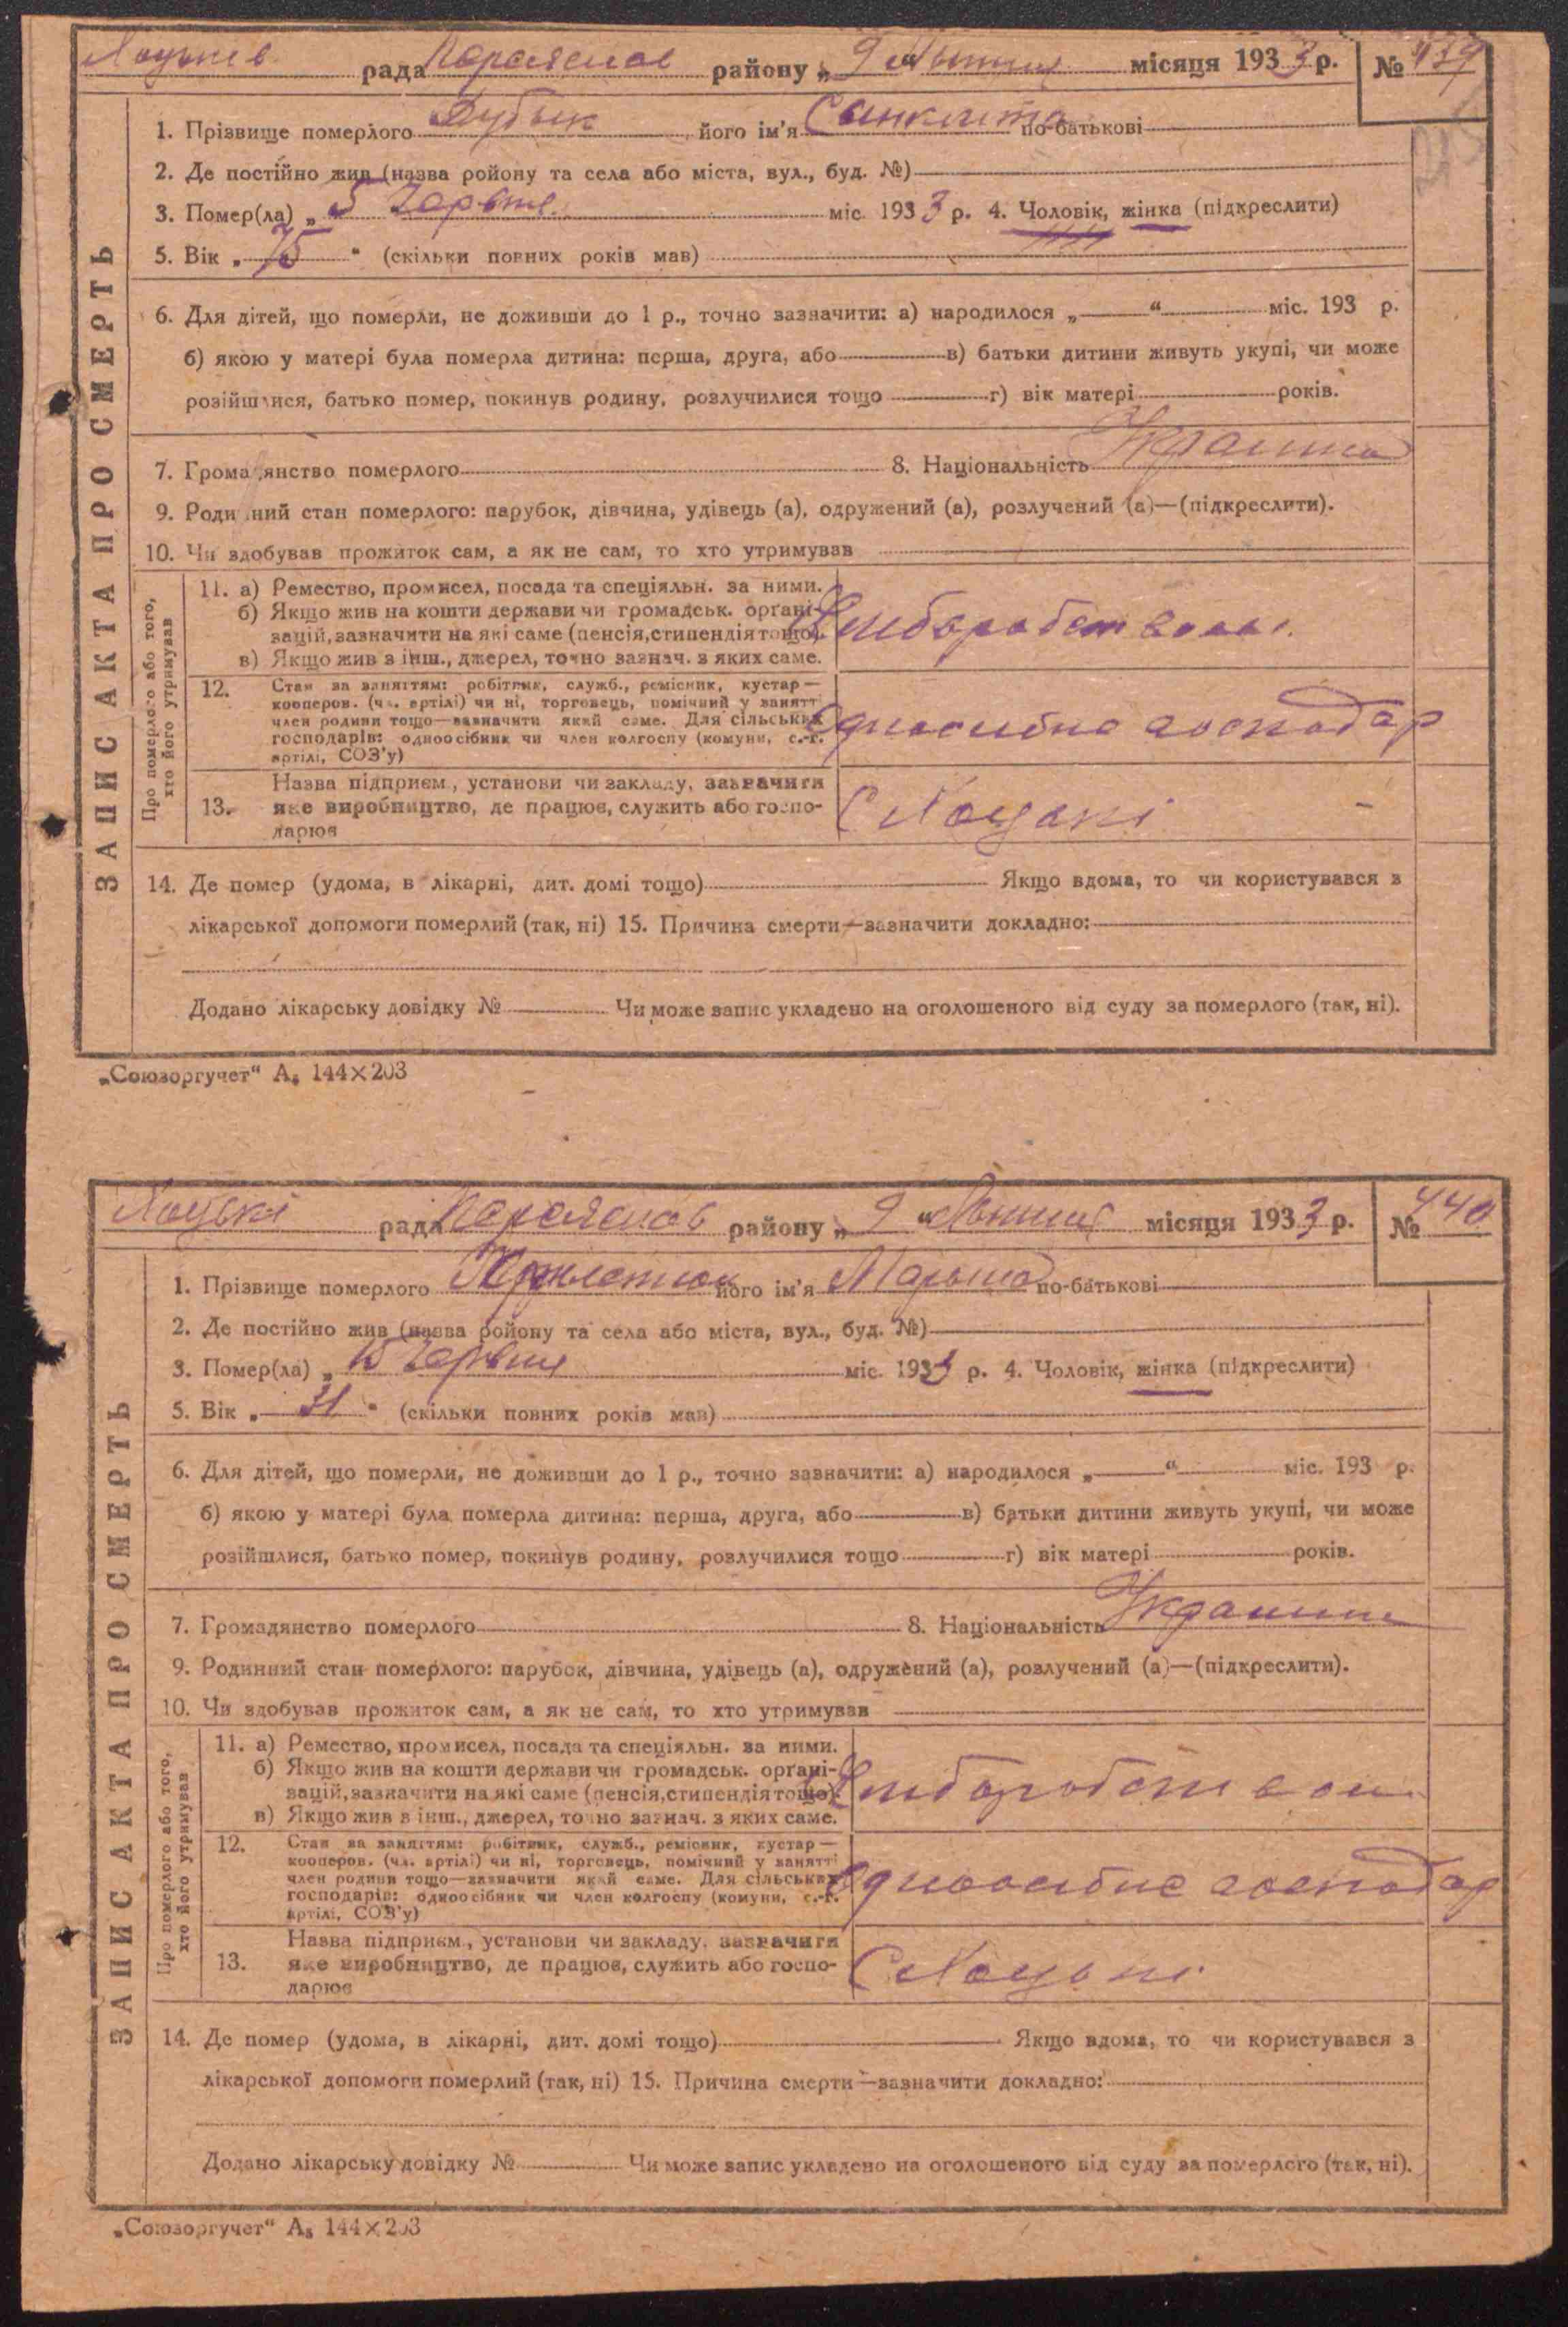 рада район у „ 9 “ Липня місяця 1933 р. № 439
1. Прізвище померлого Дубик його ім'я Синклита по-батькові
2. Де постійно жив (назва ройону та села або міста, вул., буд. №)
3. Помер(ла) „ 5 Червня міс. 1933 р. 4. Чоловік, жінка (підкреслити)
5. Вік „ 75 “ (скільки повних років мав)
6. Для дітей, що померли, не доживши до 1 р., точно зазначити: а) народилося „ “ міс. 193 р.
б) якою у матері була померла дитина: перша, друга, або в) батьки дитини живуть укупі, чи може
розійшлися, батько помер, покинув родину, розлучилися тощо г) вік матері років.
7. Громадянство померлого 8. Національність Украинка
9. Родинний стан померлого: парубок, дівчина, удівець (а), одружений (а), розлучений (а)—(підкреслити).
10. Чи здобував прожиток сам, а як не сам, то хто утримував
ЗАПИС АКТА ПРО СМЕРТЬ
Про померлого або того,
хто його утримував
11. а) Ремество, промисел, посада та спеціяльн. за ними.
б) Якщо жив на кошти держави чи громадськ. орґані-
зацій, зазначити на які саме (пенсія, стипендія тощо).
в) Якщо жив з інш., джерел, точно зазнач. з яких саме.
12. Стан за заняттям: робітник, служб., ремісник, кустар—
кооперов. (чл. артілі) чи ні, торговець, помічний у занятті
член родини тощо—зазначити який саме. Для сільських
господарів: одноосібник чи член колгоспу (комуни, с.-г.
артілі, СОЗ'у)
господар
13. Назва підприєм., установи чи закладу, зазначити
яке виробництво, де працює, служить або госпо-
дарює
14. Де помер (удома, в лікарні, дит. домі тощо) Якщо вдома, то чи користувався з
лікарської допомоги померлий (так, ні) 15. Причина смерти—зазначити докладно:
Додано лікарську довідку № Чи може запис укладено на оголошеного від суду за померлого (так, ні).
„Союзоргучет“ А₅ 144×203
рада району „ 9 “ Липня місяця 1933 р. № 440
1. Прізвище померлого його ім'я Марына по-батькові
2. Де постійно жив (назва ройону та села або міста, вул., буд. №)
3. Помер(ла) „ 15 Червня міс. 1933 р. 4. Чоловік, жінка (підкреслити)
5. Вік „ 31 “ (скільки повних років мав)
6. Для дітей, що померли, не доживши до 1 р., точно зазначити: а) народилося „ “ міс. 193 р.
б) якою у матері була померла дитина: перша, друга, або в) батьки дитини живуть укупі, чи може
розійшлися, батько помер, покинув родину, розлучилися тощо г) вік матері років.
7. Громадянство померлого 8. Національність Украинка
9. Родинний стан померлого: парубок, дівчина, удівець (а), одружений (а), розлучений (а)—(підкреслити).
10. Чи здобував прожиток сам, а як не сам, то хто утримував
ЗАПИС АКТА ПРО СМЕРТЬ
Про померлого або того,
хто його утримував
11. а) Ремество, промисел, посада та спеціяльн. за ними.
б) Якщо жив на кошти держави чи громадськ. орґані-
зацій, зазначити на які саме (пенсія, стипендія тощо).
в) Якщо жив з інш., джерел, точно зазнач. з яких саме.
12. Стан за заняттям: робітник, служб., ремісник, кустар—
кооперов. (чл. артілі) чи ні, торговець, помічний у занятті
член родини тощо—зазначити який саме. Для сільських
господарів: одноосібник чи член колгоспу (комуни, с.-г.
артілі, СОЗ'у)
господар
13. Назва підприєм., установи чи закладу, зазначити
яке виробництво, де працює, служить або госпо-
дарює
14. Де помер (удома, в лікарні, дит. домі тощо) Якщо вдома, то чи користувався з
лікарської допомоги померлий (так, ні) 15. Причина смерти—зазначити докладно:
Додано лікарську довідку № Чи може запис укладено на оголошеного від суду за померлого (так, ні).
„Союзоргучет“ А₅ 144×203